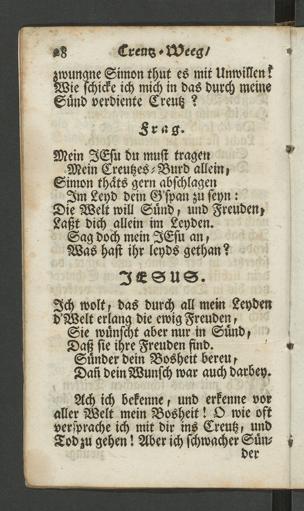 28 Creutz-Weeg/
zwungne Simon thut es mit Unwillen!
Wie schicke ich mich in das durch meine
Sünd verdiente Creutz?
Frag.
Mein JEsu du must tragen
Mein Creutzes-Burd allein,
Simon thäts gern abschlagen
Im Leyd dein G'span zu seyn:
Die Welt will Sünd, und Freuden,
Laßt dich allein im Leyden.
Sag doch mein JEsu an,
Was hast ihr leyds gethan?
JESUS.
Ich wolt, das durch all mein Leyden
d'Welt erlang die ewig Freuden,
Sie wünscht aber nur in Sünd,
Daß sie ihre Freuden find.
Sünder dein Bosheit bereu,
Dañ dein Wunsch war auch darbey.
Ach ich bekenne, und erkenne vor
aller Welt mein Bosheit! O wie oft
versprache ich mit dir ins Creutz, und
Tod zu gehen! Aber ich schwacher Sün-
der